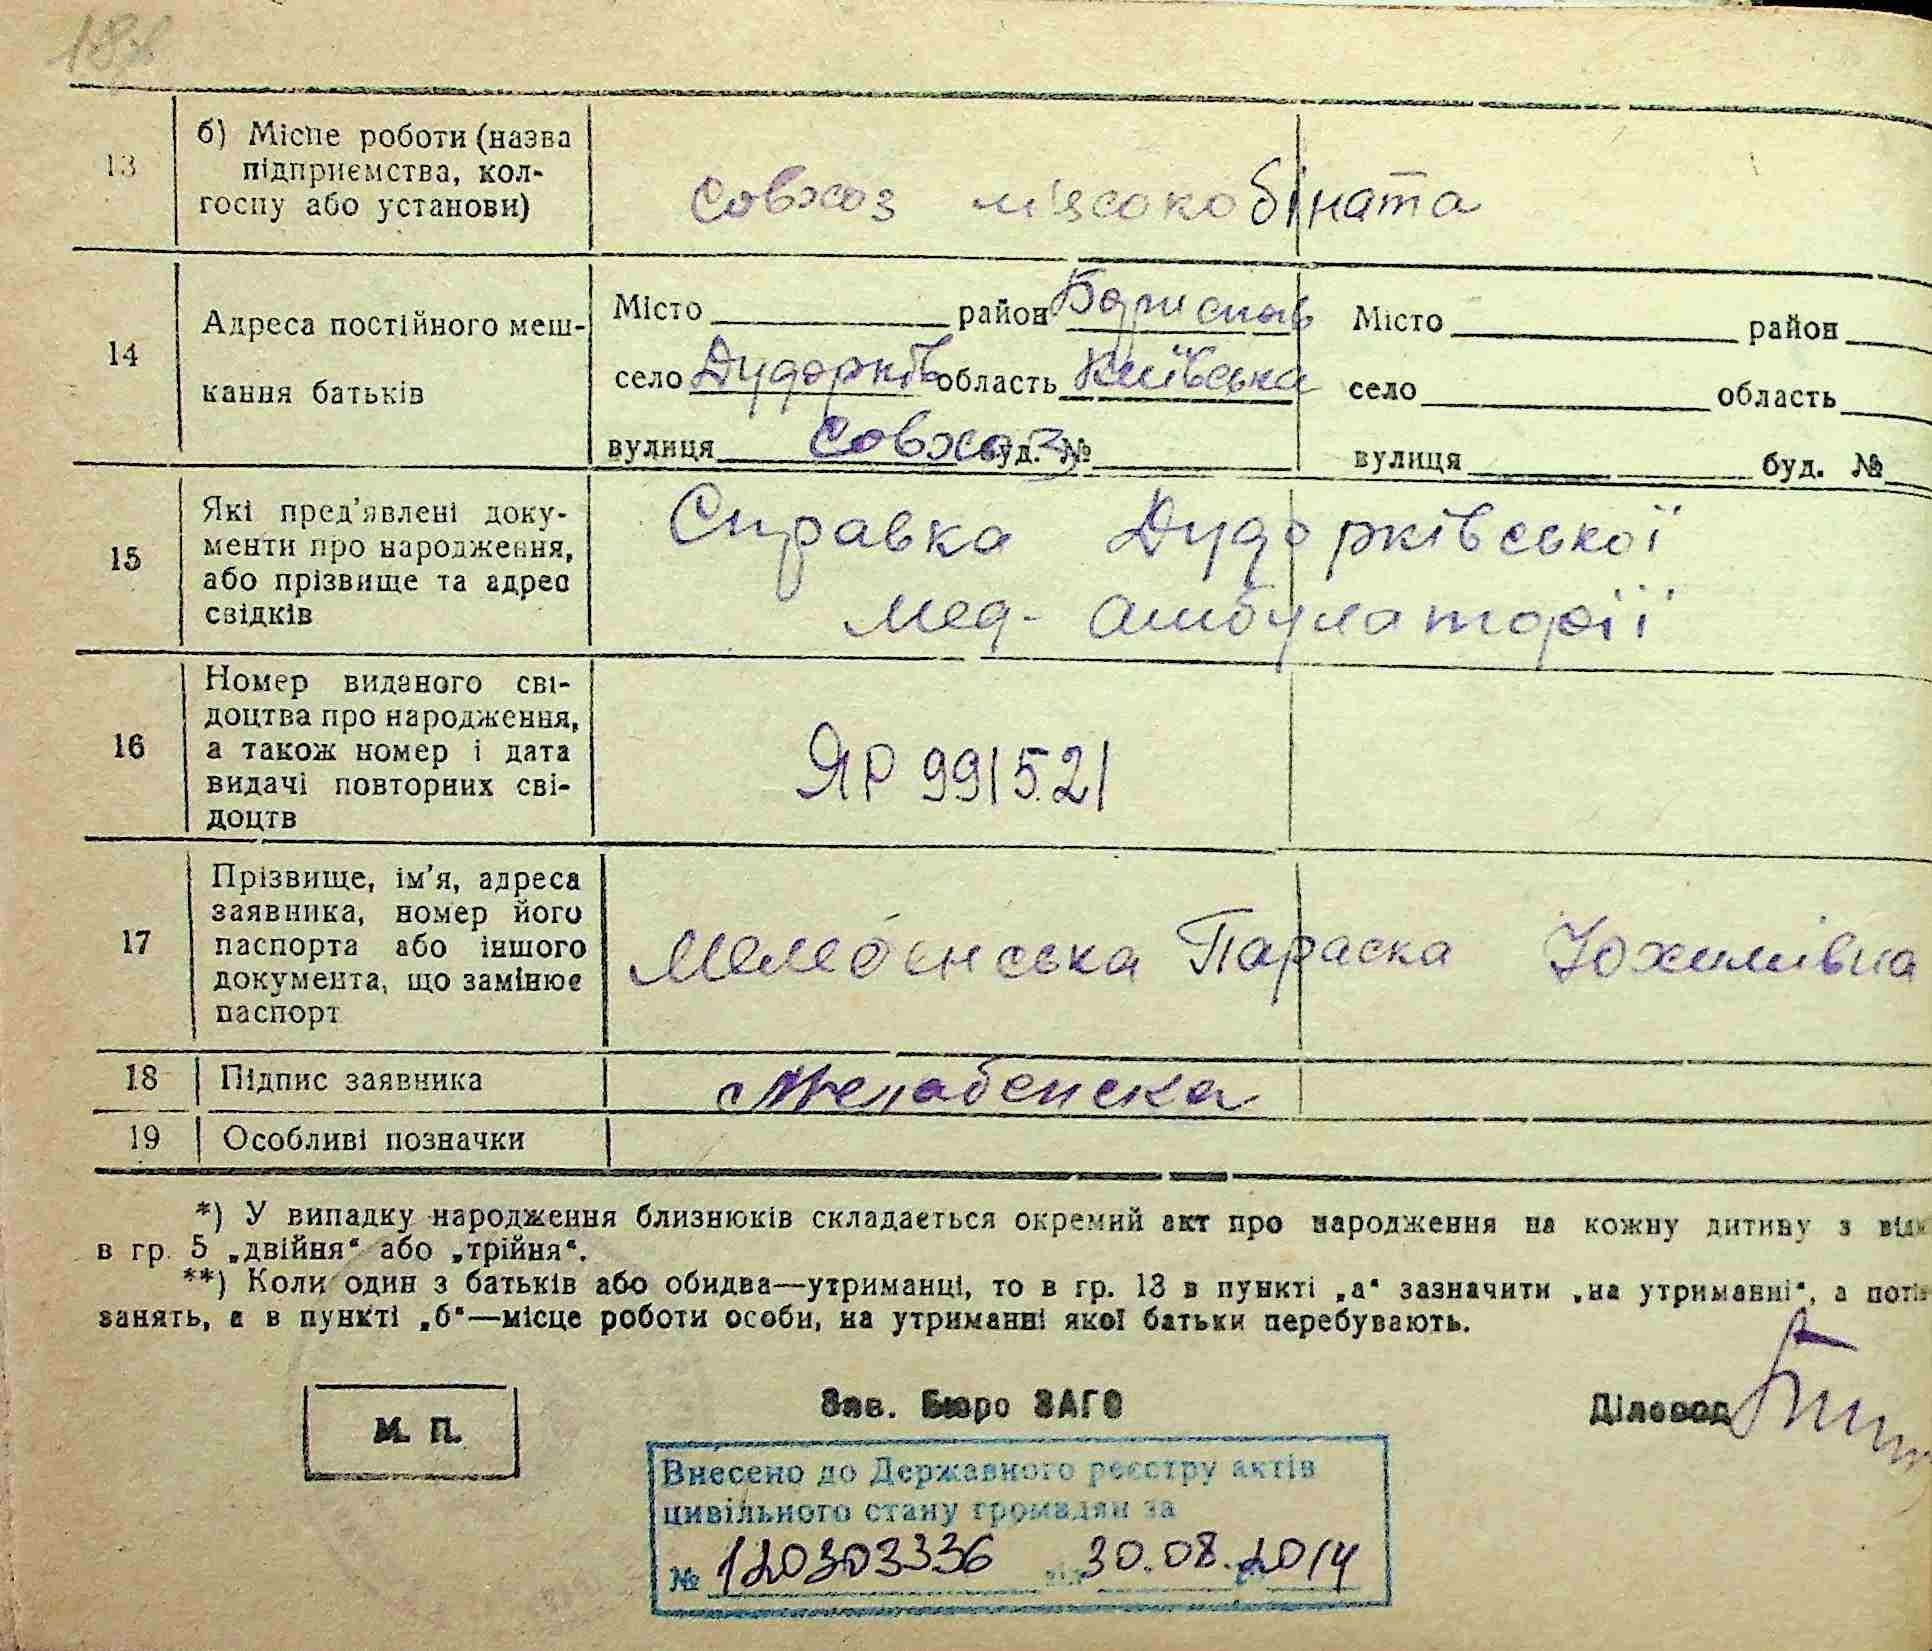 13
б) Місце роботи (назва
підприємства, кол-
госпу або установи)
совхоз м'ясокобіната
14
Адреса постійного меш-
кання батьків
Місто район Бориспів Місто район
село Дударків область Київська село область
вулиця Совхоз буд. № вулиця буд. №
15
Які пред'явлені доку-
менти про народження,
або прізвище та адрес
свідків
Справка Дударківської
мед- амбулаторії
16
Номер виданого сві-
доцтва про народження,
а також номер і дата
видачі повторних сві-
доцтв
ЯР 991521
17
Прізвище, ім'я, адреса
заявника, номер його
паспорта або іншого
документа, що замінює
паспорт
Параска Юхимівна
18 Підпис заявника
19 Особливі позначки
*) У випадку народження близнюків складається окремий акт про народження на кожну дитину з
в гр. 5 „двійня“ або „трійня“.
**) Коли один з батьків або обидва—утриманці, то в гр. 13 в пункті „а“ зазначити „на утриманні“, а
занять, а в пункті „б“—місце роботи особи, на утриманні якої батьки перебувають.
М. П.
Зав. Бюро ЗАГС
Діловод
Внесено до Державного реєстру актів
цивільного стану громадян за
№ 120303336 від 30.08.2014